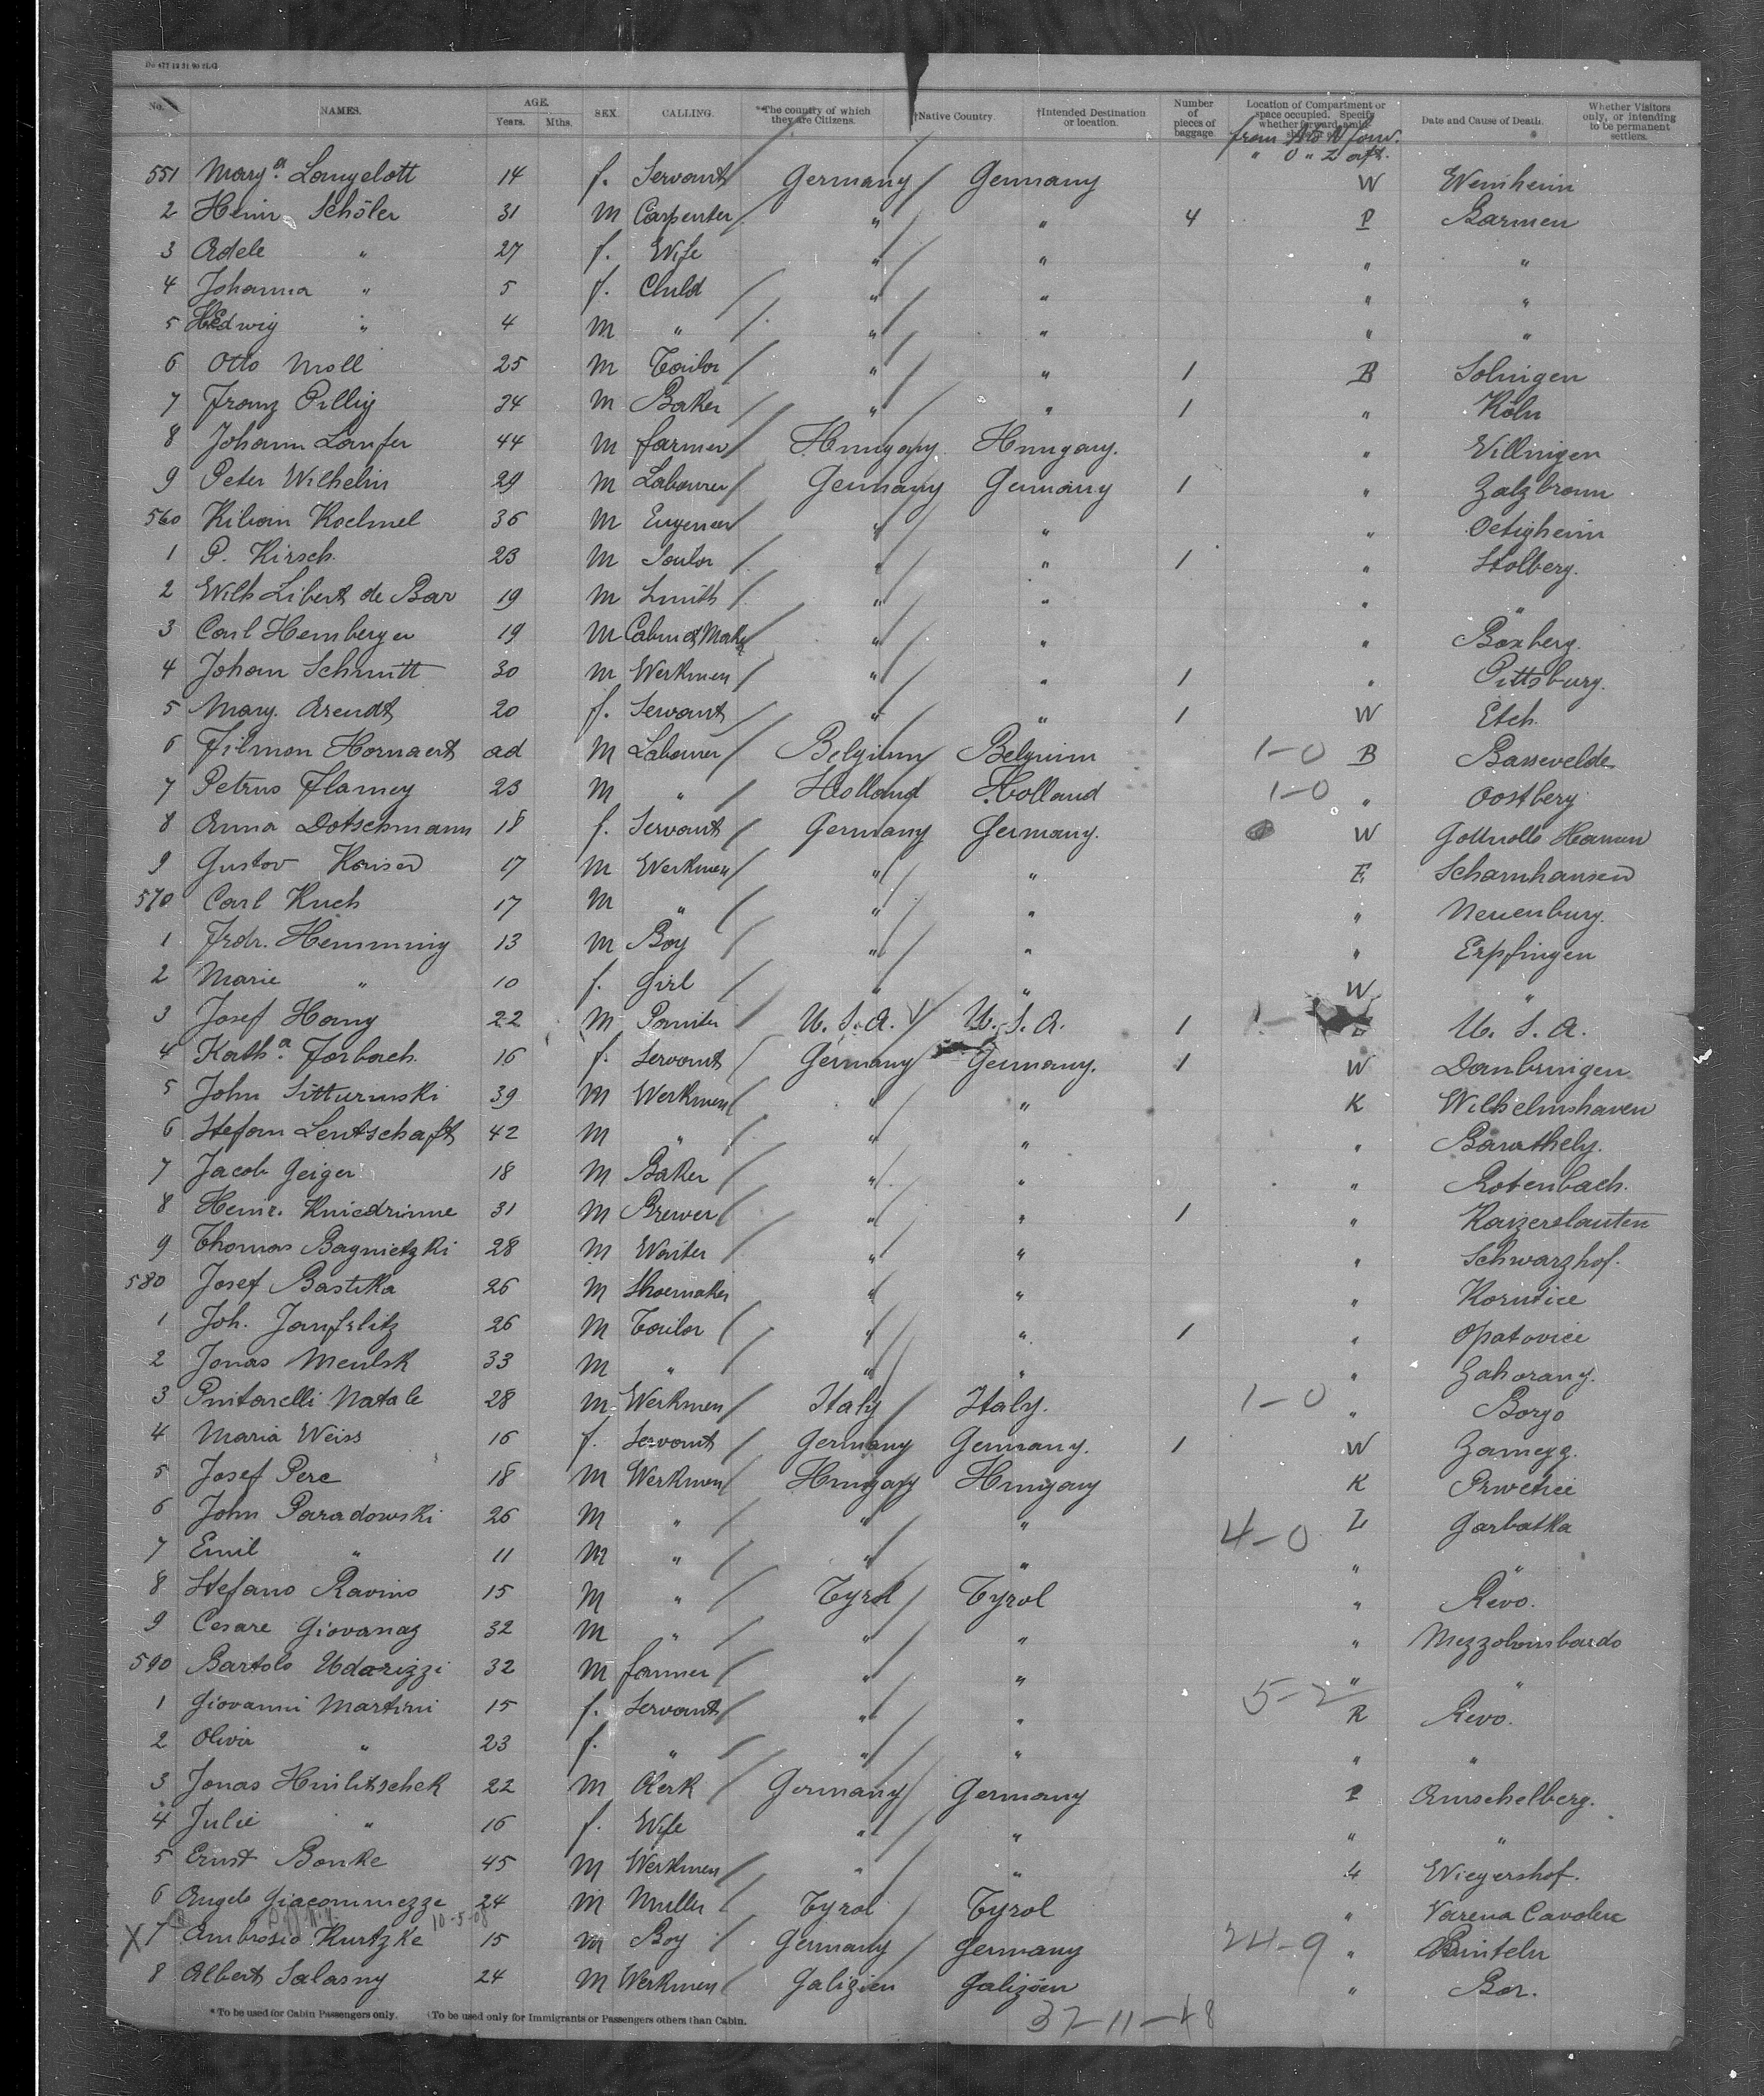 No. NAMES. AGE. Years. Mths. SEX. CALLING. *The country of which they are Citizens. †Native Country. †Intended Destination or location. Number of pieces of baggage. Location of Compartment or space occupied. Specify whether forward, Date and Cause of Death. Whether Visitors only, or intending to be permanent settlers.
" 0 " Z aft.
551 Marya. Langelott 14 f. Servant Germany Germany W Weinheim
2 Heinr. Schöler 31 M Carpenter " " 4 P Barmen
3 Adele " 27 f. Wife " " " "
4 Johanna " 5 f. Child " " " "
5 Hedwig " 4 M " " " " "
6 Otto Moll 25 M Tailor " " 1 B Solingen
7 Franz Pillig 34 M Baker " " 1 " Köln
8 Johann Laufer 44 M farmer Hungary Hungary. " Villingen
9 Peter Wilhelm 29 M Labourer Germany Germany 1 " Zalzbronn
560 Kilian Koelmel 36 M Engeneer " " " Oetigheim
1 P. Kirsch. 23 M " " 1 " Stolberg.
2 Wilh Libert de Bar 19 M Smith " " " "
3 Carl Hemberger 19 M Cabinet Maker " " " Boxberg.
4 Johan Schmitt 30 M Werkmen " " 1 " Pittsburg.
5 Mary. Arendt 20 f. Servant " " 1 W Etch.
6 Filmon Hornaert ad M Labourer Belgium Belgium 1-0 B Bassevelde
7 Petrus Flamey 23 M " Holland Holland 1-0 " Oostberg
8 Anna Dotschmann 18 f. Servant Germany Germany. W
9 Gustav Kaiser 17 M Werkmen " " E Scharnhausen
570 Carl Kuch 17 M " " " " Neuenburg.
1 Frdr. Hemming 13 M Boy " " " Erpfingen
2 Marie " 10 f. Girl " " W "
3 Josef Hany 22 M Painter U. S. A. U. S. A. 1 1- U. S. A.
4 Katha. Forbach. 16 f. Servant Germany Germany. 1 W Dambringen
5 John Sitturmski 39 M Werkmen " " K Wilhelmshaven
6 Stefan Lentschaft 42 M " " " " Barathely.
7 Jacob Geiger 18 M Baker " " " Rotenbach.
8 Heinr. Kniedrimme 31 M Brewer " " 1 " Kaizerslauten
9 Thomas Bagnietzki 28 M Waiter " " " Schwarzhof.
580 Josef Bastka 26 M Shoemaker " " " Kornitice
1 Joh. Janfrlitz 26 M Tailor " " 1 " Opatovice
2 Jonas Menlsk 33 M " " " " Zahorany.
3 Pnitarelli Natale 28 M Werkmen Italy Italy. 1-0 " Borgo
4 Maria Weiss 16 f. Servant Germany Germany. 1 W Zameyg.
5 Josef Perc 18 M Werkmen Hungary Hungary K
6 John Paradowski 26 M " " " 4-0 Z Garbatka
7 Emil " 11 M " " " " "
8 Stefano Ravino 15 M " Tyrol Tyrol " Revo.
9 Cesare Giovanaz 32 M " " " " Mezzolombardo
590 Bartolo Udarizzi 32 M farmer " " " "
1 Giovanni Martini 15 f. Servant " " 5-2 R Revo.
2 Olivir " 23 f. " " " " "
3 Jonas Hmilitschek 22 M Clerk Germany Germany P Amschelberg.
4 Julie " 16 f. Wife " " " "
5 Ernst Bonke 45 M Werkmen " " Z Wiegershof.
6 Angelo Giacommezze 24 M Muller Tyrol Tyrol " Varena Cavolen
10-5-08
X 7 Ambrosio Kurtzke 15 M Boy Germany Germany 24-9 " Binteln
8 Albert Salasny 24 M Werkmen Galizien Galizien " Bor.
*To be used for Cabin Passengers only. †To be used only for Immigrants or Passengers others than Cabin.
37-11-48